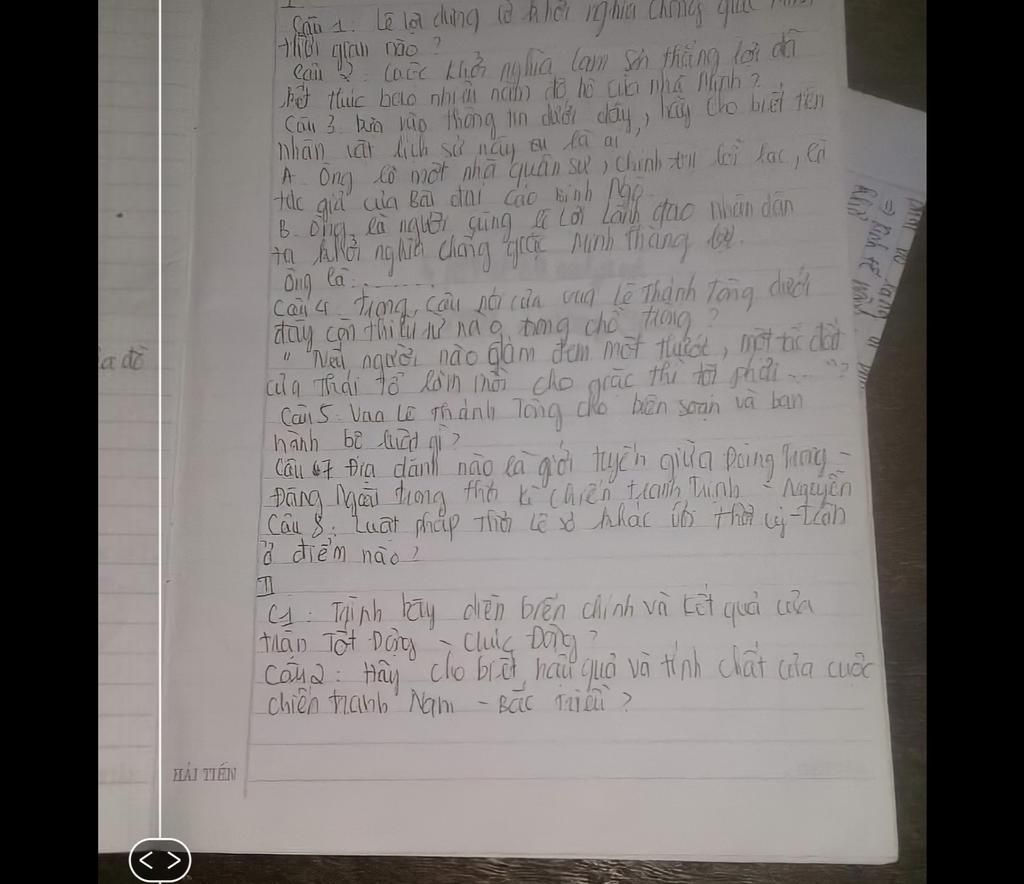 I
Câu 1: Lê lợi dựng cờ khởi nghĩa chống quân Minh
thời gian nào?
Câu 2: Cuộc khởi nghĩa Lam Sơn thắng lợi đã
kết thúc bao nhiêu năm đô hộ của nhà Minh?
Câu 3. Dựa vào thông tin dưới đây, hãy cho biết tên
nhân vật lịch sử này là ai
A. Ông là một nhà quân sự, chính trị lỗi lạc, là
tác giả của Bài đại cáo Bình Ngô.
B. Ông là người cùng lê Lợi Lãnh đạo nhân dân
ta khởi nghĩa chống giặc Minh thắng lợi.
Ông là:........
Câu 4. Trong câu nói của vua Lê Thánh Tông dưới
đây còn thiếu từ nào trong chỗ trống?
" Nếu người nào dám đem một thước, một tấc đất
của Thái tổ làm mồi cho giặc thì tội phải..."?
Câu 5. Vua Lê Thánh Tông cho biên soạn và ban
hành bộ luật gì?
Câu 7 Địa danh nào là giới tuyến giữa Đàng Trong -
Đàng Ngoài trong thời kì chiến tranh Trịnh - Nguyễn
Câu 8: Luật pháp Thời Lê sơ khác với thời Lý-trần
ở điểm nào?
II
C1: Trình bày diễn biến chính và kết quả của
trận Tốt Động - Chúc Động?
Câu 2: Hãy cho biết hậu quả và tính chất của cuộc
chiến tranh Nam - Bắc triều?
HẢI TIẾN
a đồ